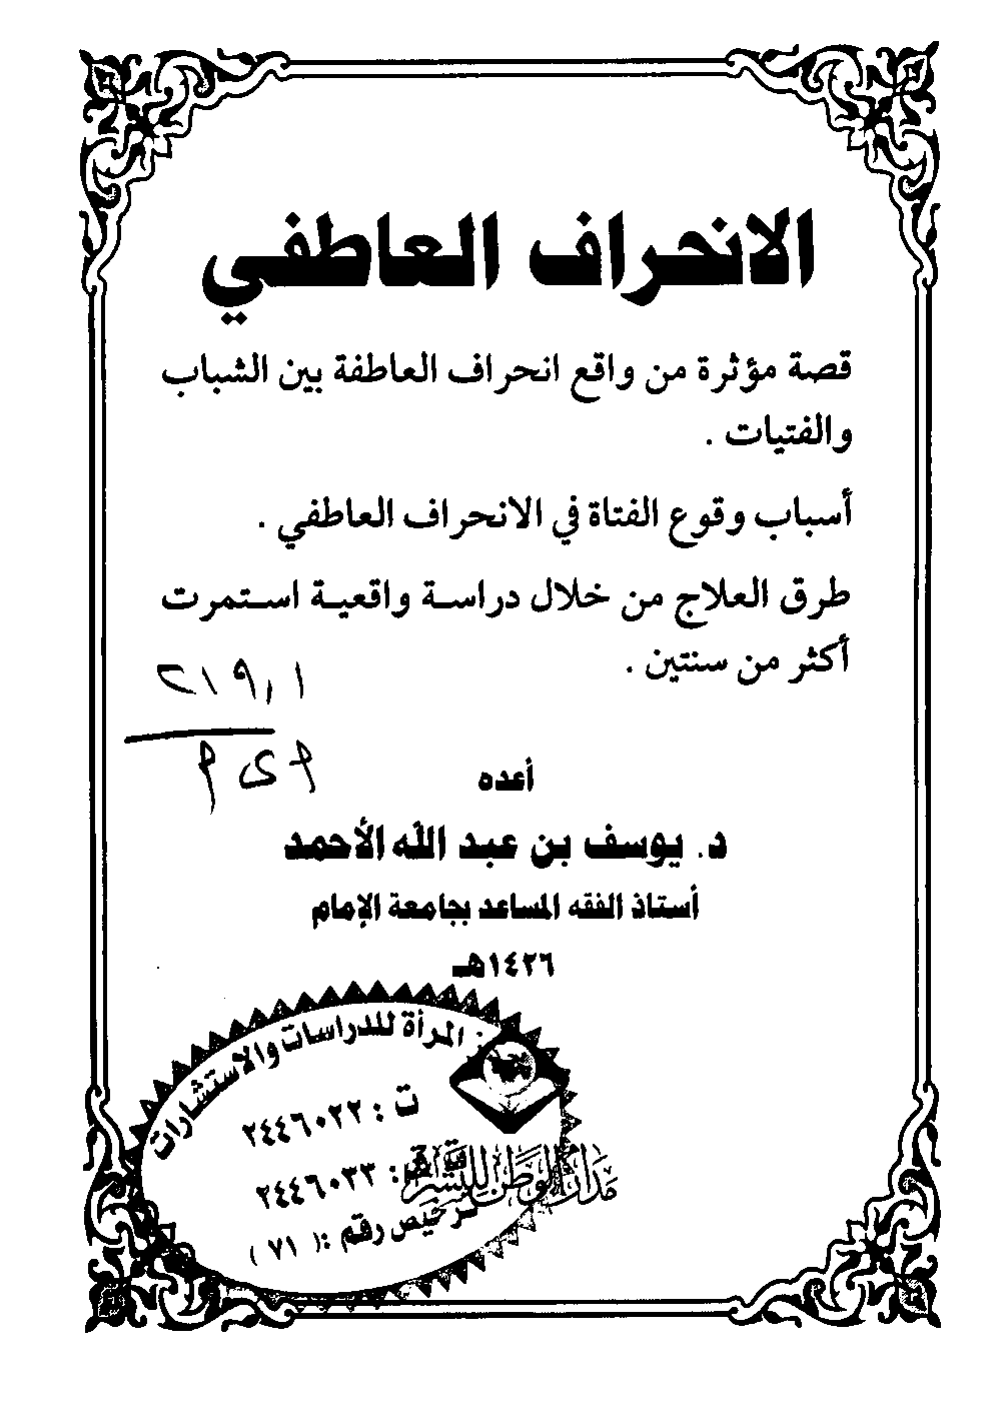 الانحراف العاطفي
قصة مؤثرة من واقع انحراف العاطفة بين الشباب
والفتيات .
أسباب وقوع الفتاة في الانحراف العاطفي .
طرق العلاج من خلال دراسة واقعية استمرت
أكثر من سنتين .
٢١٩,١
أعده
د. يوسف بن عبد الله الأحمد
أستاذ الفقه المساعد بجامعة الإمام
١٤٢٦هـ
المرأة للدراسات والاستشارات
ت : ٢٤٤٦٠٢٢
٢٤٤٦٠٣٣
مدار الوطن للنشر
ترخيص رقم :( ٧١ )